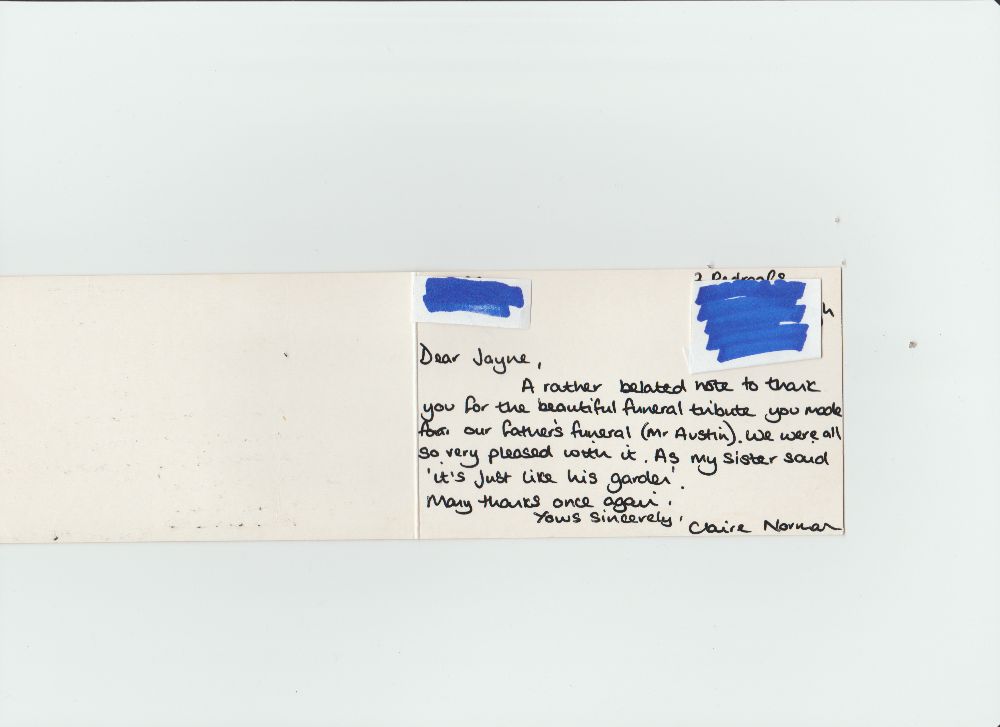 Dear Jayne,
A rather belated note to thank
you for the beautiful funeral tribute you made
for our father's funeral (Mr Austin). We were all
so very pleased with it. As my sister said
'it's just like his garden'.
Many thanks once again.
Yours sincerely,
Claire Norman